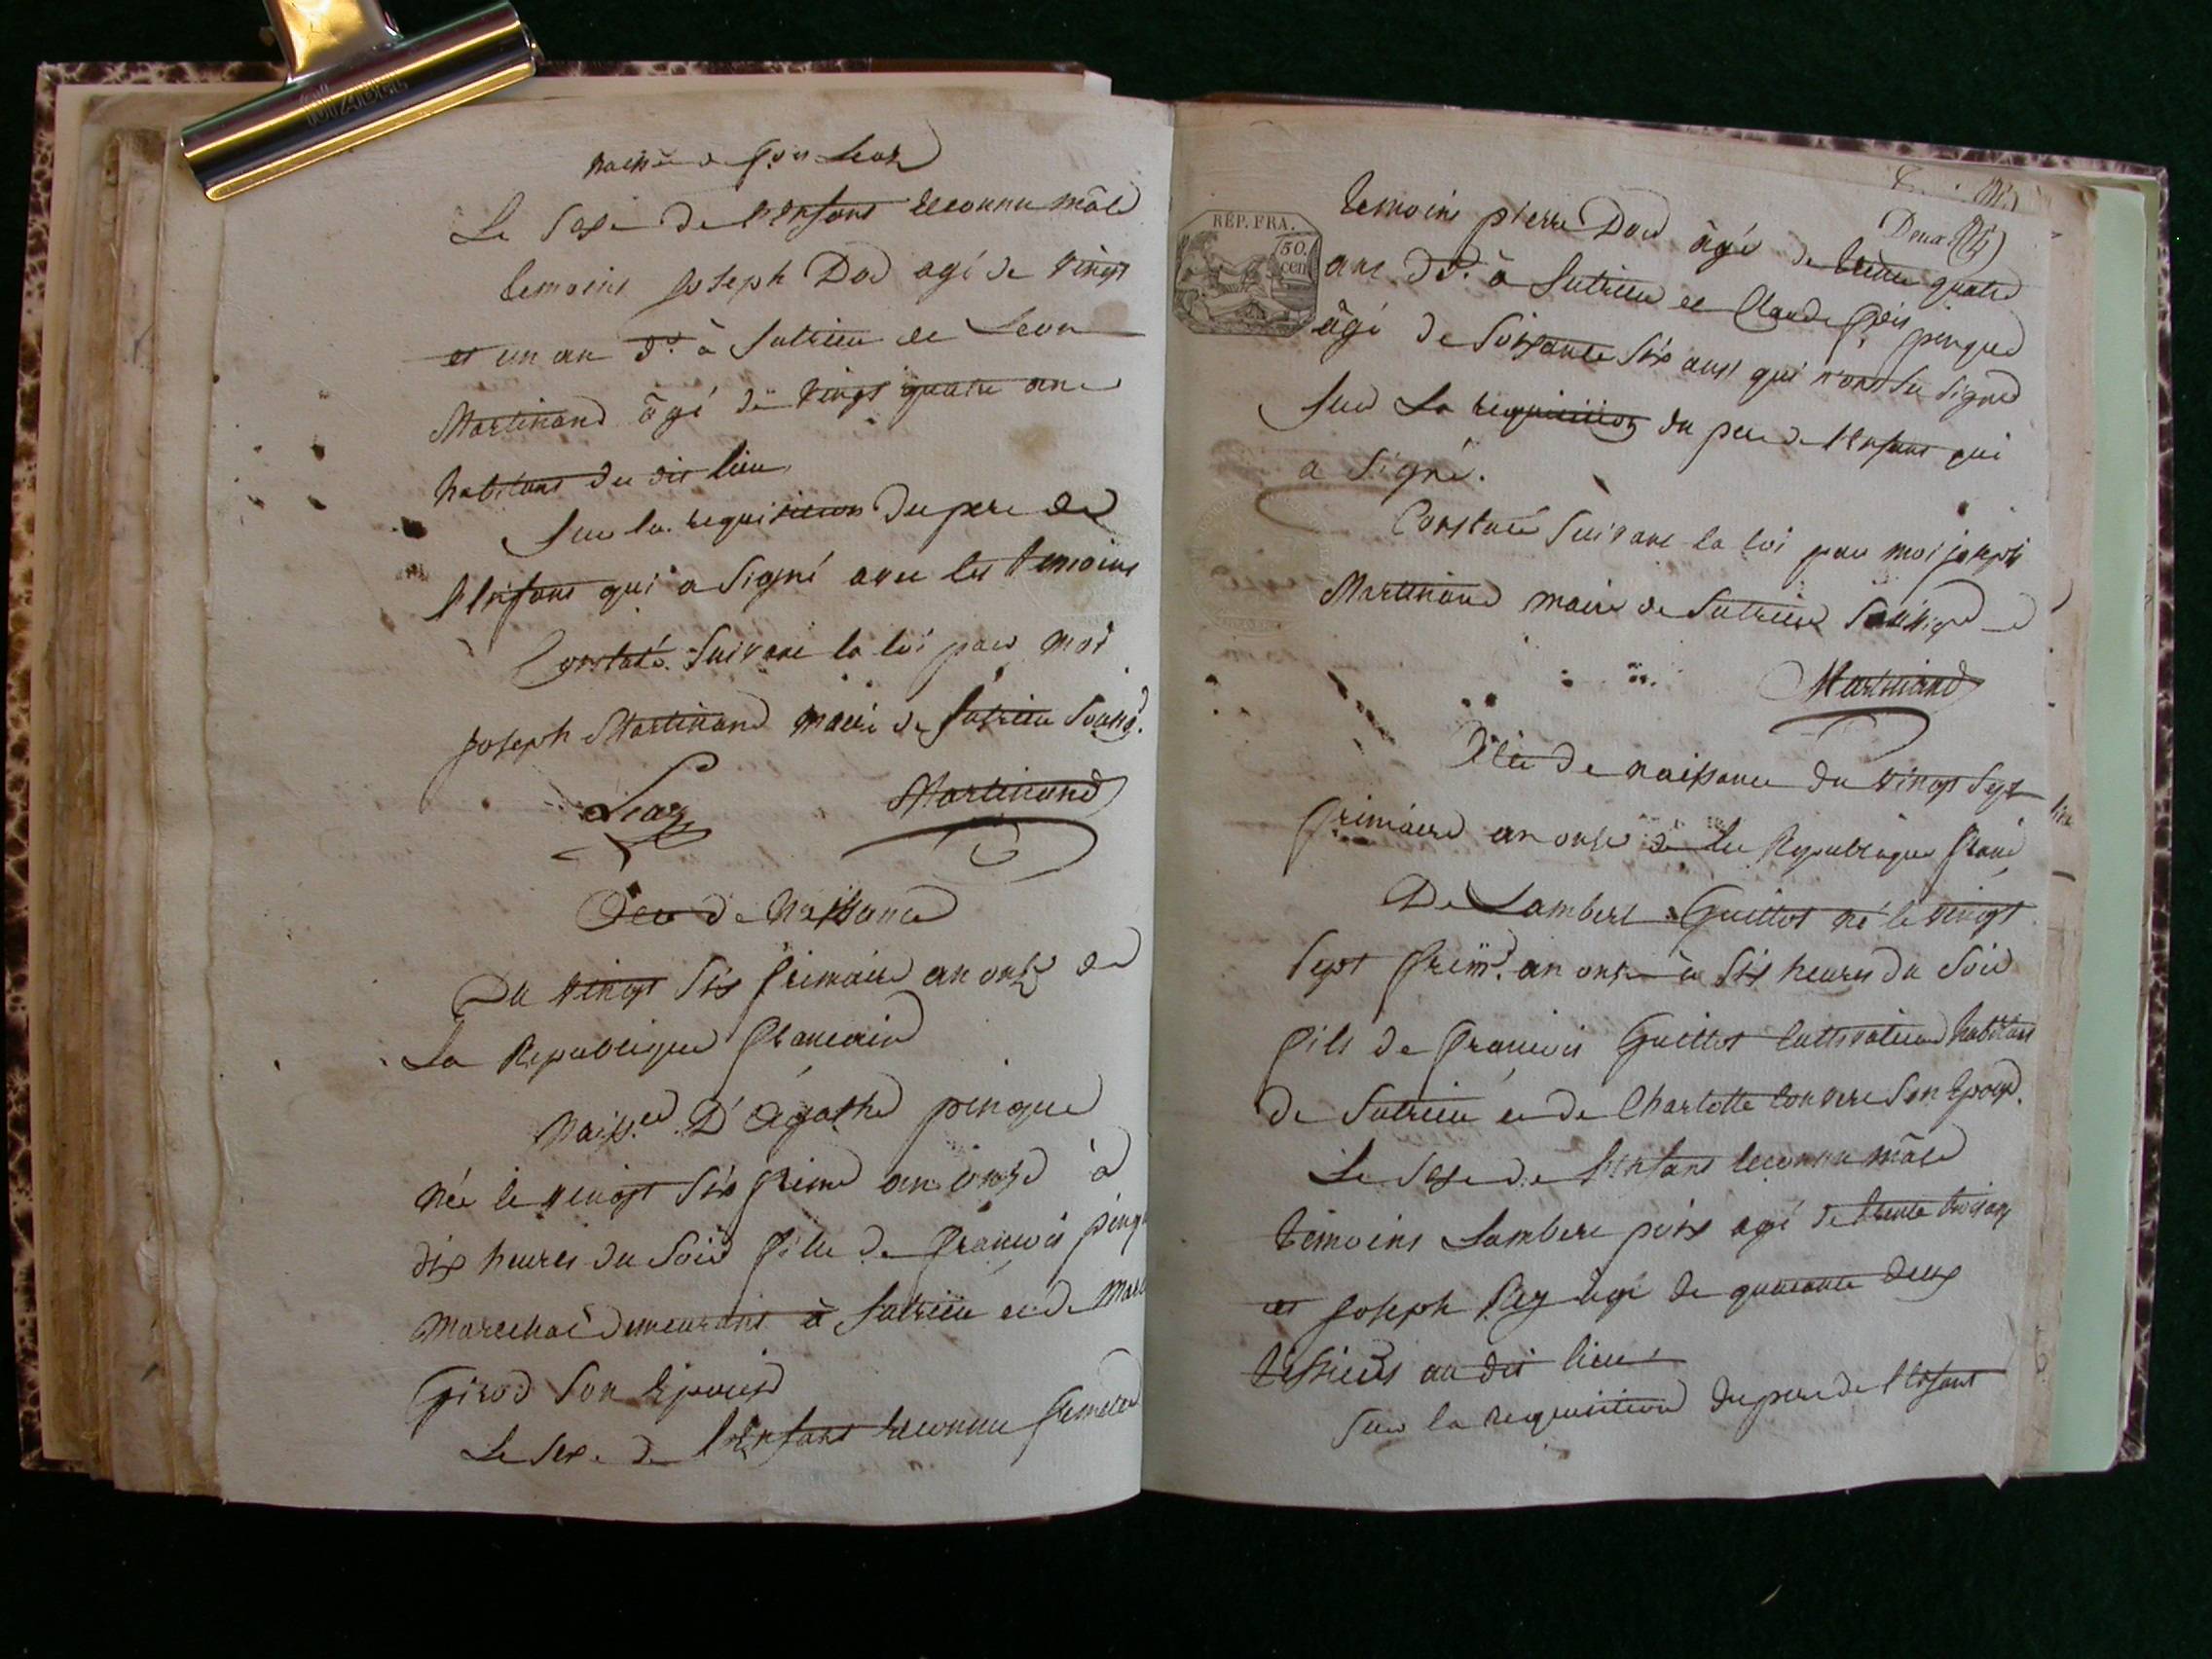 Le Sexe de l'Enfant reconnu mâle
temoins Joseph Dod agé de vingt
et un an dt. à Sutrieu et Leon
Martinand âgé de vingt quatre ans
habitans du dit lieu
Sur la requisition du pere de
l'Enfant qui a Signé avec les temoins
Constaté Suivant la loi par moi
Joseph Martinand maire de Sutrieu Sousig.
Martinand
Acte de Naissance
Du vingt Six frimaire an onze de
La Republique francaise
Naiss.ce D'Agathe pingue
née le vingt Six frime an onze à
dix heures du Soir fille de francois
Marechal demeurant à Sutrieu et de
Girod Son Epouse
Le Sexe de l'Enfant reconnu femele
RÉP. FRA.
50.
cen
temoins pierre Dod âgé de trente quatre
ans dt. à Sutrieu et Claude fois pingue
âgé de Soixante Six ans qui n'ont Su Signer
Sur La requisition du pere de l'Enfant qui
a Signé.
Constaté Suivant la loi par moi joseph
Martinand maire de Sutrieu Soussigné
Martinand
Acte de naissance du vingt Sept
frimaire an onze de la Republique franc
De Lambert Guillot né le vingt
Sept frim. an onze à Six heures du Soir
fils de francois Guillot Cultivateur habitant
de Sutrieu et de Charlotte Son Epouse.
Le Sexe de l'Enfant reconnu mâle
temoins Lambert agé de trente trois ans
et Joseph agé de quarante deux
au dit lieu
Sur la requisition du pere de l'Enfant